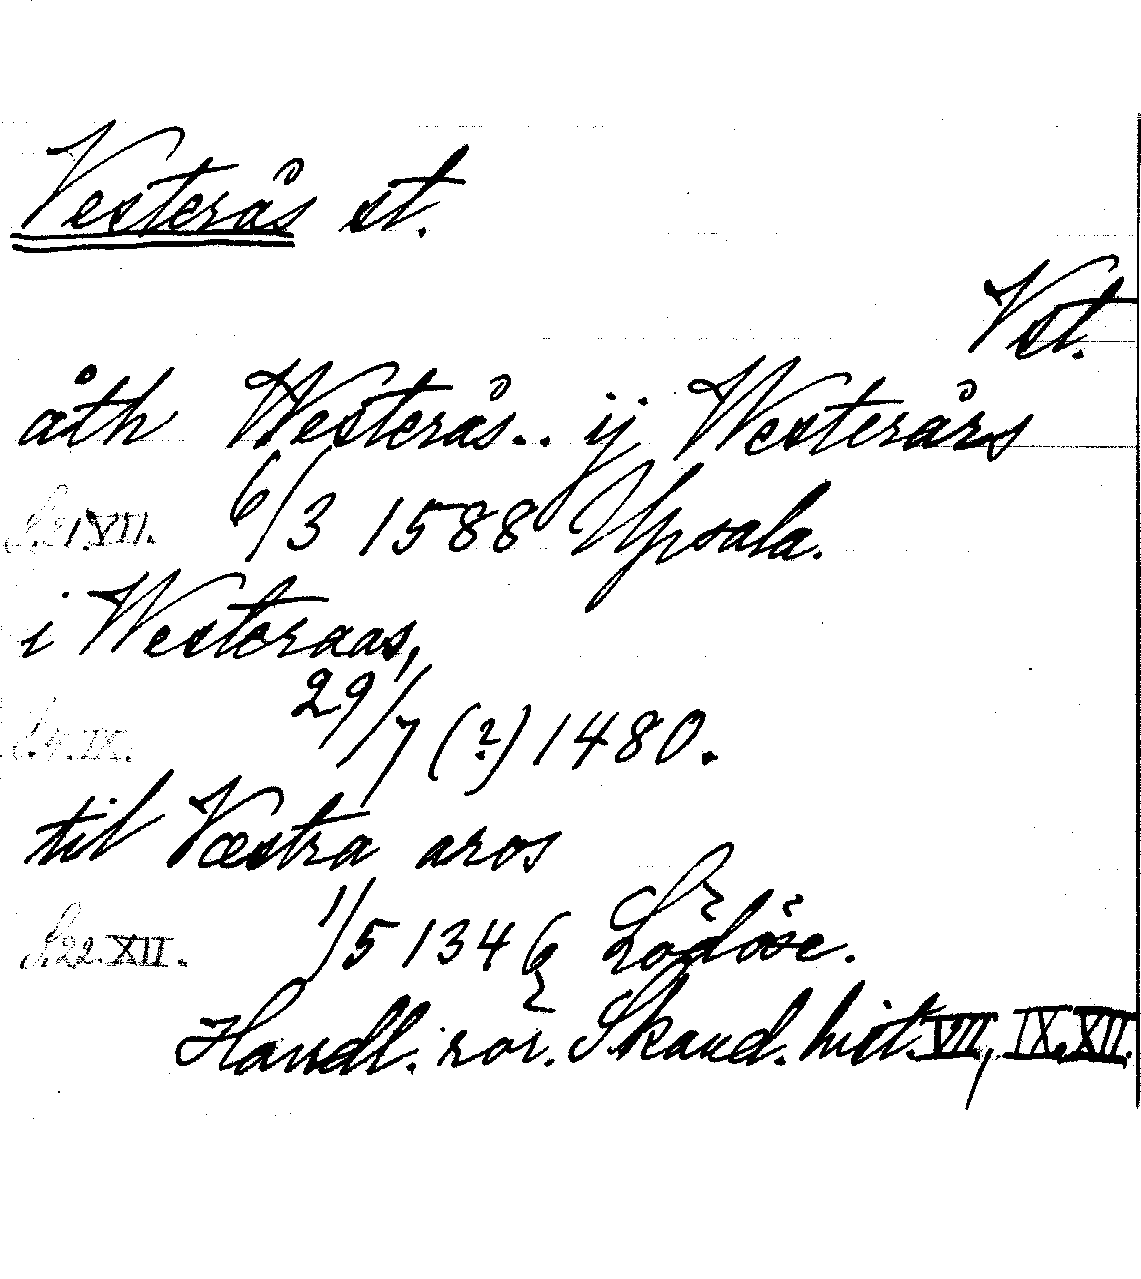 Vesterås st.
Vst.
åth Westerås.. ij Westerårs
S. 21. VII. 6/3 1588 Upsala.
i Westeraas,
S. 4. IX. 29/7 (?) 1480.
til Væstra aros
S. 22. XII. 1/5 1346 Lödöse.
Handl. rör. Skand. hist. VII, IX, XII.